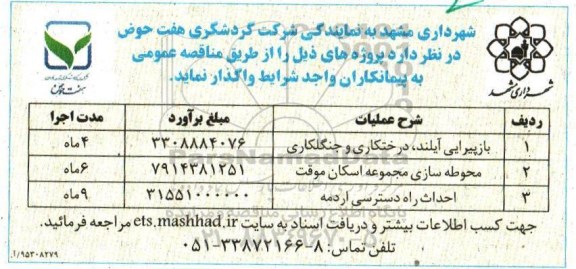 شهرداری مشهد به نمایندگی شرکت گردشگری هفت حوض
در نظر دارد پروژه های ذیل را از طریق مناقصه عمومی
به پیمانکاران واجد شرایط واگذار نماید.
شهرداری مشهد
ردیف شرح عملیات مبلغ برآورد مدت اجرا
۱ بازپیرایی آیلند، درختکاری و جنگلکاری ۳۳۰۸۸۸۴۰۷۶ ۴ماه
۲ محوطه سازی مجموعه اسکان موقت ۷۹۱۴۳۸۱۲۵۱ ۶ماه
۳ احداث راه دسترسی ازدمه ۳۱۵۵۱۰۰۰۰۰۰ ۹ماه
جهت کسب اطلاعات بیشتر و دریافت اسناد به سایت ets.mashhad.ir مراجعه فرمائید.
تلفن تماس: ۸-۳۳۸۷۲۱۶۶-۰۵۱
۹۵۳۰۸۲۷۹/د